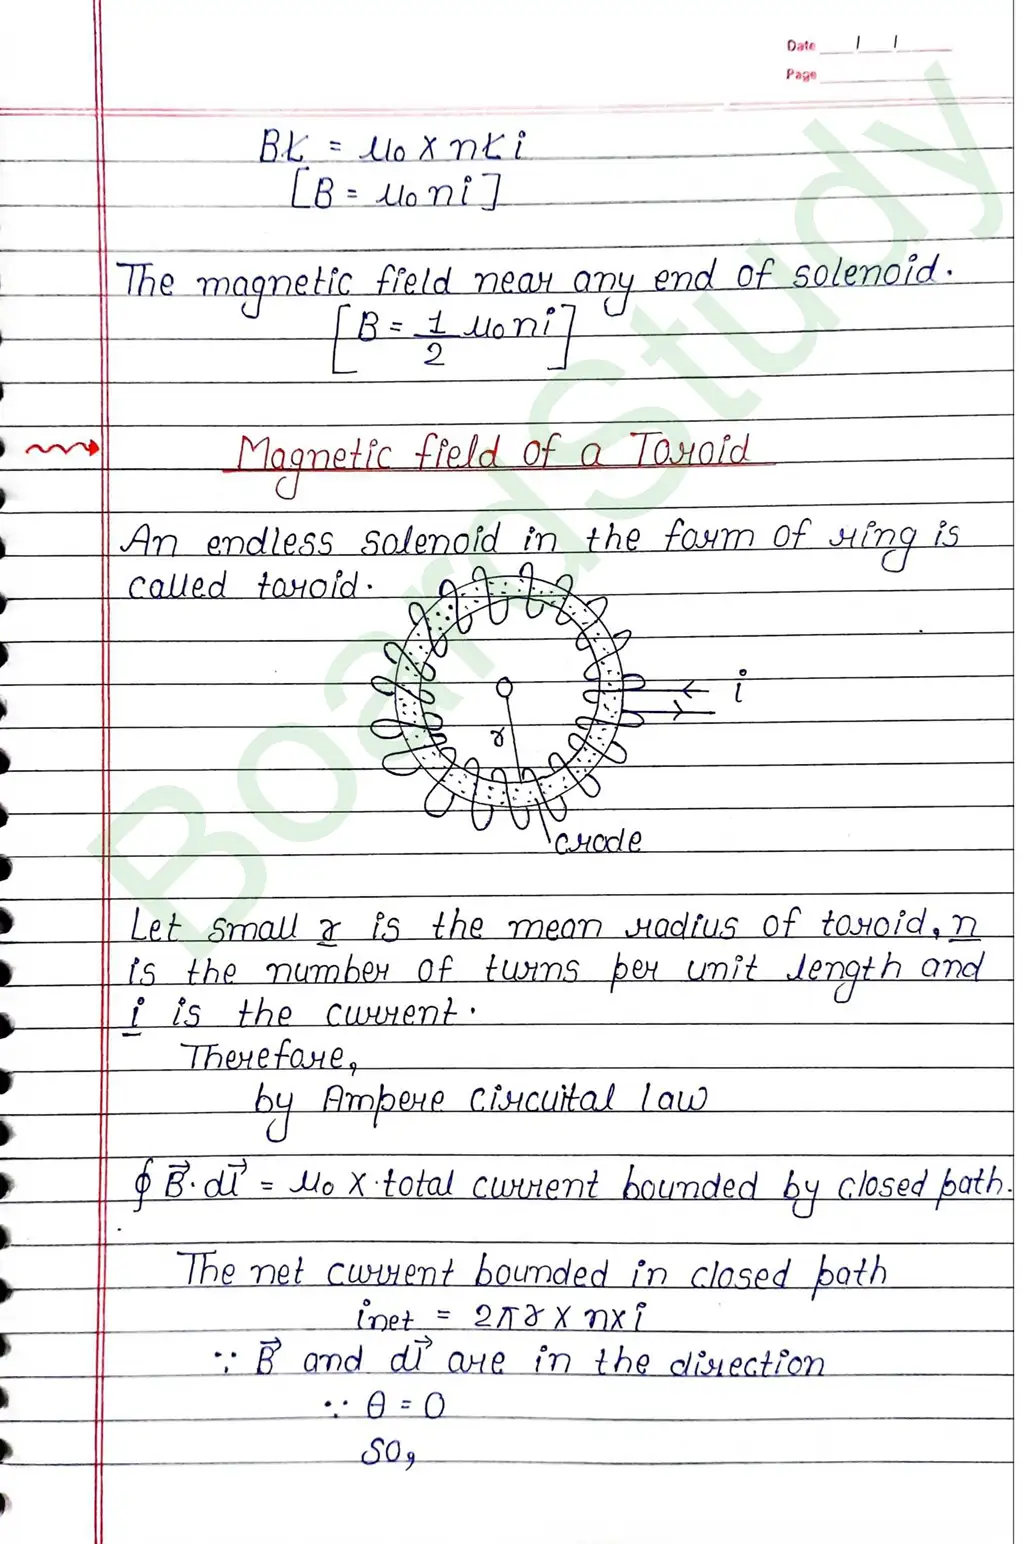 Date / /
Page
B.L = μ₀ × nL i
[B = μ₀ n i]
The magnetic field near any end of solenoid.
[B = 1/2 μ₀ n i]
Magnetic field of a Toroid
An endless solenoid in the form of ring is
called toroid.
i
r
crode
Let small r is the mean radius of toroid, n
is the number of turns per unit length and
i is the current.
Therefore,
by Ampere circuital law
∮ B⃗. dl⃗ = μ₀ × total current bounded by closed path.
The net current bounded in closed path
inet = 2πr × n × i
∵ B⃗ and dl⃗ are in the direction
∵ θ = 0
SO,
BoardStudy